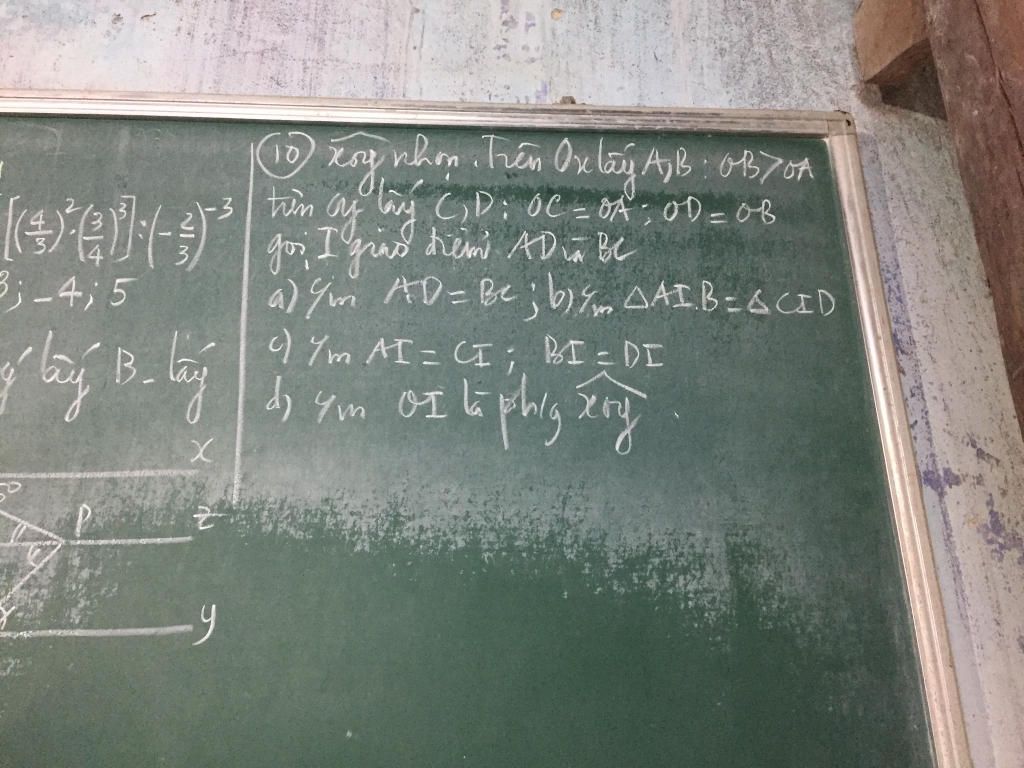 [(4/3)².(3/4)³]:(-2/3)⁻³
3; -4; 5
lấy B. lấy
x
P
z
y
(10) xOy nhọn. Trên Ox lấy A,B: OB>OA
trên Oy lấy C,D: OC=OA; OD=OB
gọi I giao điểm AD và BC
a) c/m AD=BC; b) c/m ΔAIB=ΔCID
c) c/m AI=CI; BI=DI
d) c/m OI là ph/g xOy